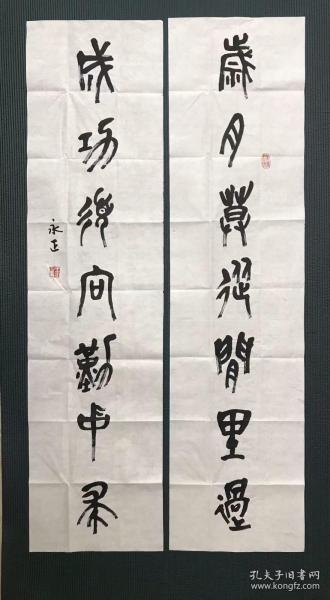 歲月莫從閒里過
成功須向勤中求
永正
孔夫子旧书网
www.kongfz.com